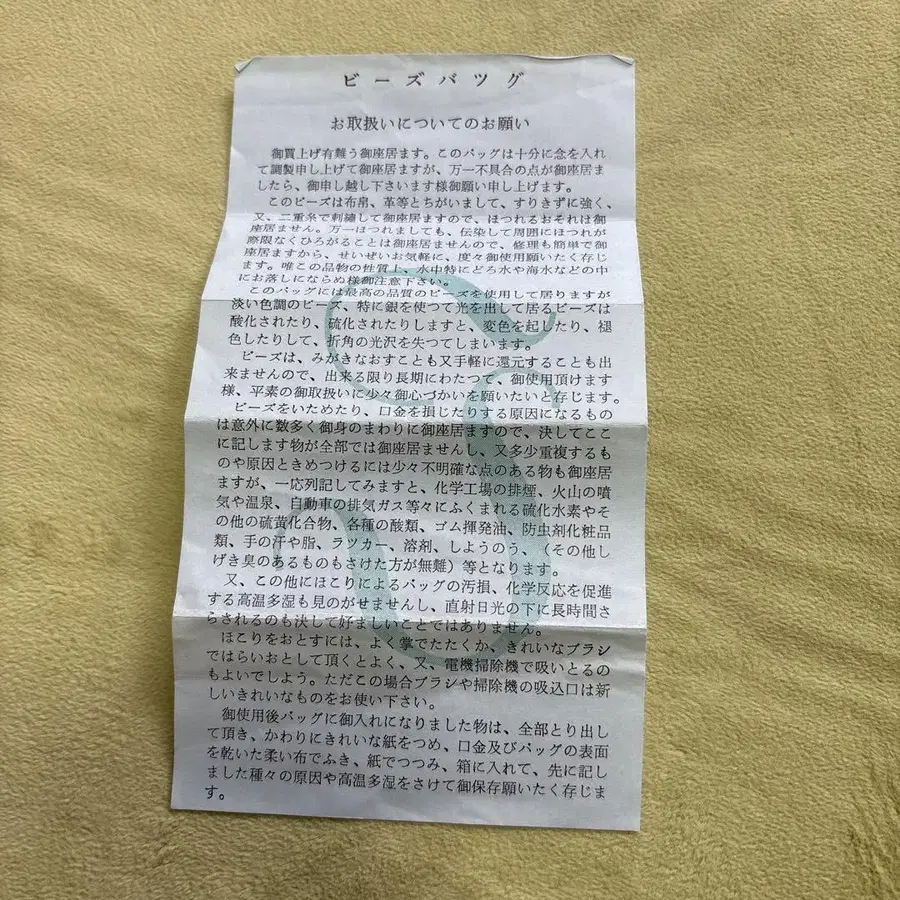 ビーズバツグ
お取扱いについてのお願い
御買上げ有難う御座居ます。このバッグは十分に念を入れ
て調製申し上げて御座居ますが、万一不具合の点が御座居ま
したら、御申し越し下さいます様御願い申し上げます。
このビーズは布帛、革等とちがいまして、すりきずに強く、
又、二重糸で刺繍して御座居ますので、ほつれるおそれは御
座居ません。万一ほつれましても、伝染して周囲にほつれが
際限なくひろがることは御座居ませんので、修理も簡単で御
座居ますから、せいぜいお気軽に、度々御使用願いたく存じ
ます。唯この品物の性質上、水中特にどろ水や海水などの中
にお落しにならぬ様御注意下さい。
このバッグには最高の品質のビーズを使用して居りますが
淡い色調のビーズ、特に銀を使つて光を出して居るビーズは
酸化されたり、硫化されたりしますと、変色を起したり、褪
色したりして、折角の光沢を失つてしまいます。
ビーズは、みがきなおすことも又手軽に還元することも出
来ませんので、出来る限り長期にわたつて、御使用頂けます
様、平素の御取扱いに少々御心づかいを願いたいと存じます。
ビーズをいためたり、口金を損じたりする原因になるもの
は意外に数多く御身のまわりに御座居ますので、決してここ
に記します物が全部では御座居ませんし、又多少重複するも
のや原因ときめつけるには少々不明確な点のある物も御座居
ますが、一応列記してみますと、化学工場の排煙、火山の噴
気や温泉、自動車の排気ガス等々にふくまれる硫化水素やそ
の他の硫黄化合物、各種の酸類、ゴム揮発油、防虫剤化粧品
類、手の汗や脂、ラツカー、溶剤、しようのう、（その他し
げき臭のあるものもさけた方が無難）等となります。
又、この他にほこりによるバッグの汚損、化学反応を促進
する高温多湿も見のがせませんし、直射日光の下に長時間さ
らされるのも決して好ましいことではありません。
ほこりをおとすには、よく掌でたたくか、きれいなブラシ
ではらいおとして頂くとよく、又、電機掃除機で吸いとるの
もよいでしよう。ただこの場合ブラシや掃除機の吸込口は新
しいきれいなものをお使い下さい。
御使用後バッグに御入れになりました物は、全部とり出し
て頂き、かわりにきれいな紙をつめ、口金及びバッグの表面
を乾いた柔い布でふき、紙でつつみ、箱に入れて、先に記し
ました種々の原因や高温多湿をさけて御保存願いたく存じま
す。